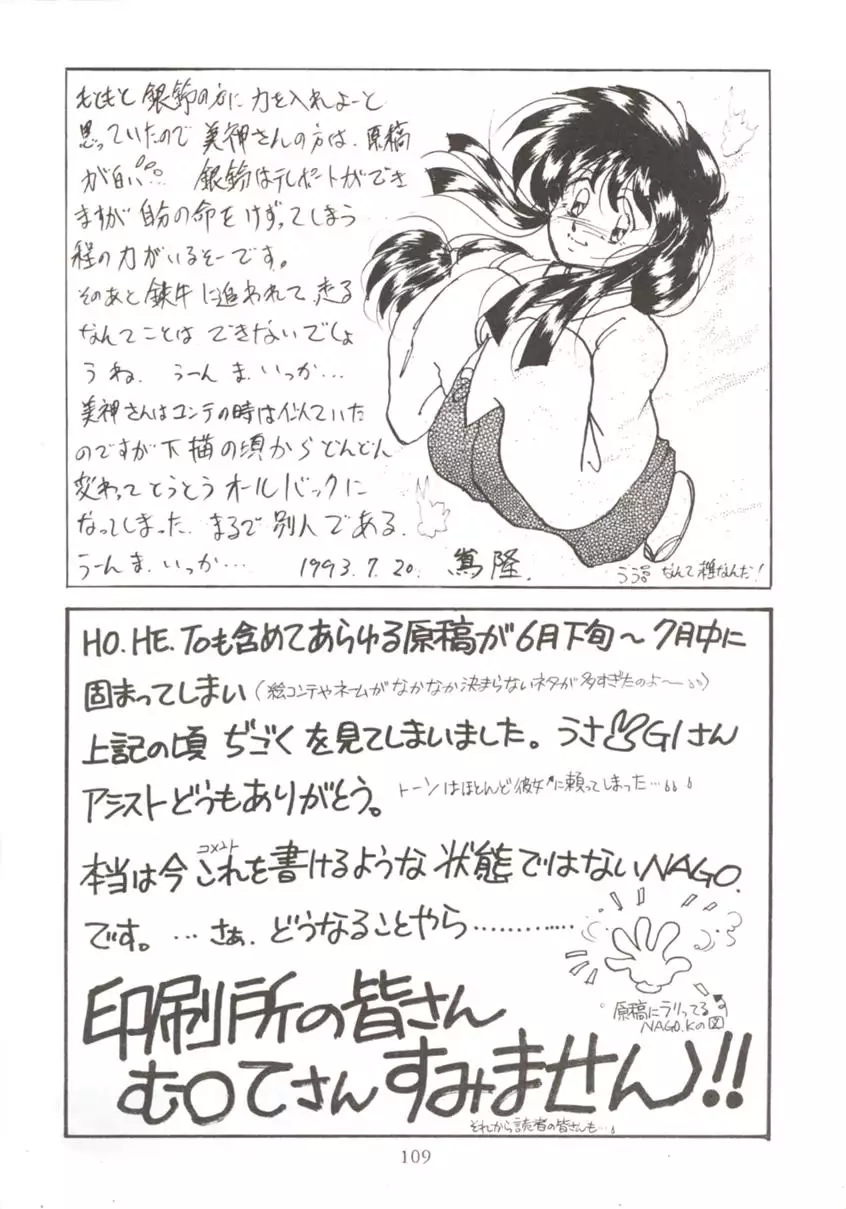 もともと 銀鈴の方に 力を入れよーと
思っていたので 美神さんの方は、原稿
が白い… 銀鈴はテレポートができ
ますが 自分の命をけずってしまう
程の力がいるそーです。
そのあと 鉄牛 に追われて、走る
なんてことは できないでしょ
うね、うーん ま、いっか…
美神さんはコンテの時は似ていた
のですが 下描の頃からどんどん
変わって とうとう オールバックに
なってしまった、まるで 別人である、
うーん ま、いっか… 1993.7.20. 嵩隆.
うう なんて 雑なんだ!
HO.HE.Toも含めてあらゆる原稿が6月下旬〜7月中に
固まってしまい(絵コンテやネームがなかなか決まらないネタが多すぎたのよ〜)
上記の頃 ぢごくを見てしまいました。うさGIさん
アシストどうもありがとう。トーンはほとんど彼女に頼ってしまった…
コメント
本当は今これを書けるような状態ではないNAGO.
です。…さぁ、どうなることやら…………
原稿にラリってる
NAGO.Kの図
印刷所の皆さん
む○てさん すみません!!
それから読者の皆さんも…
109